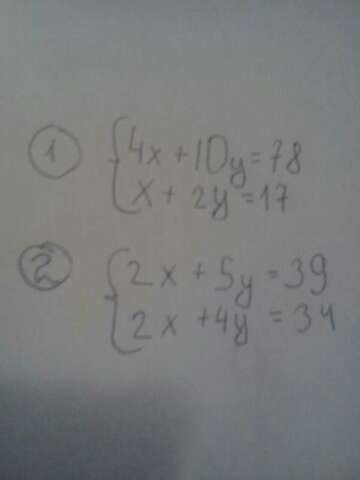 1 4x + 10y = 78
x + 2y = 17
2 2x + 5y = 39
2x + 4y = 34